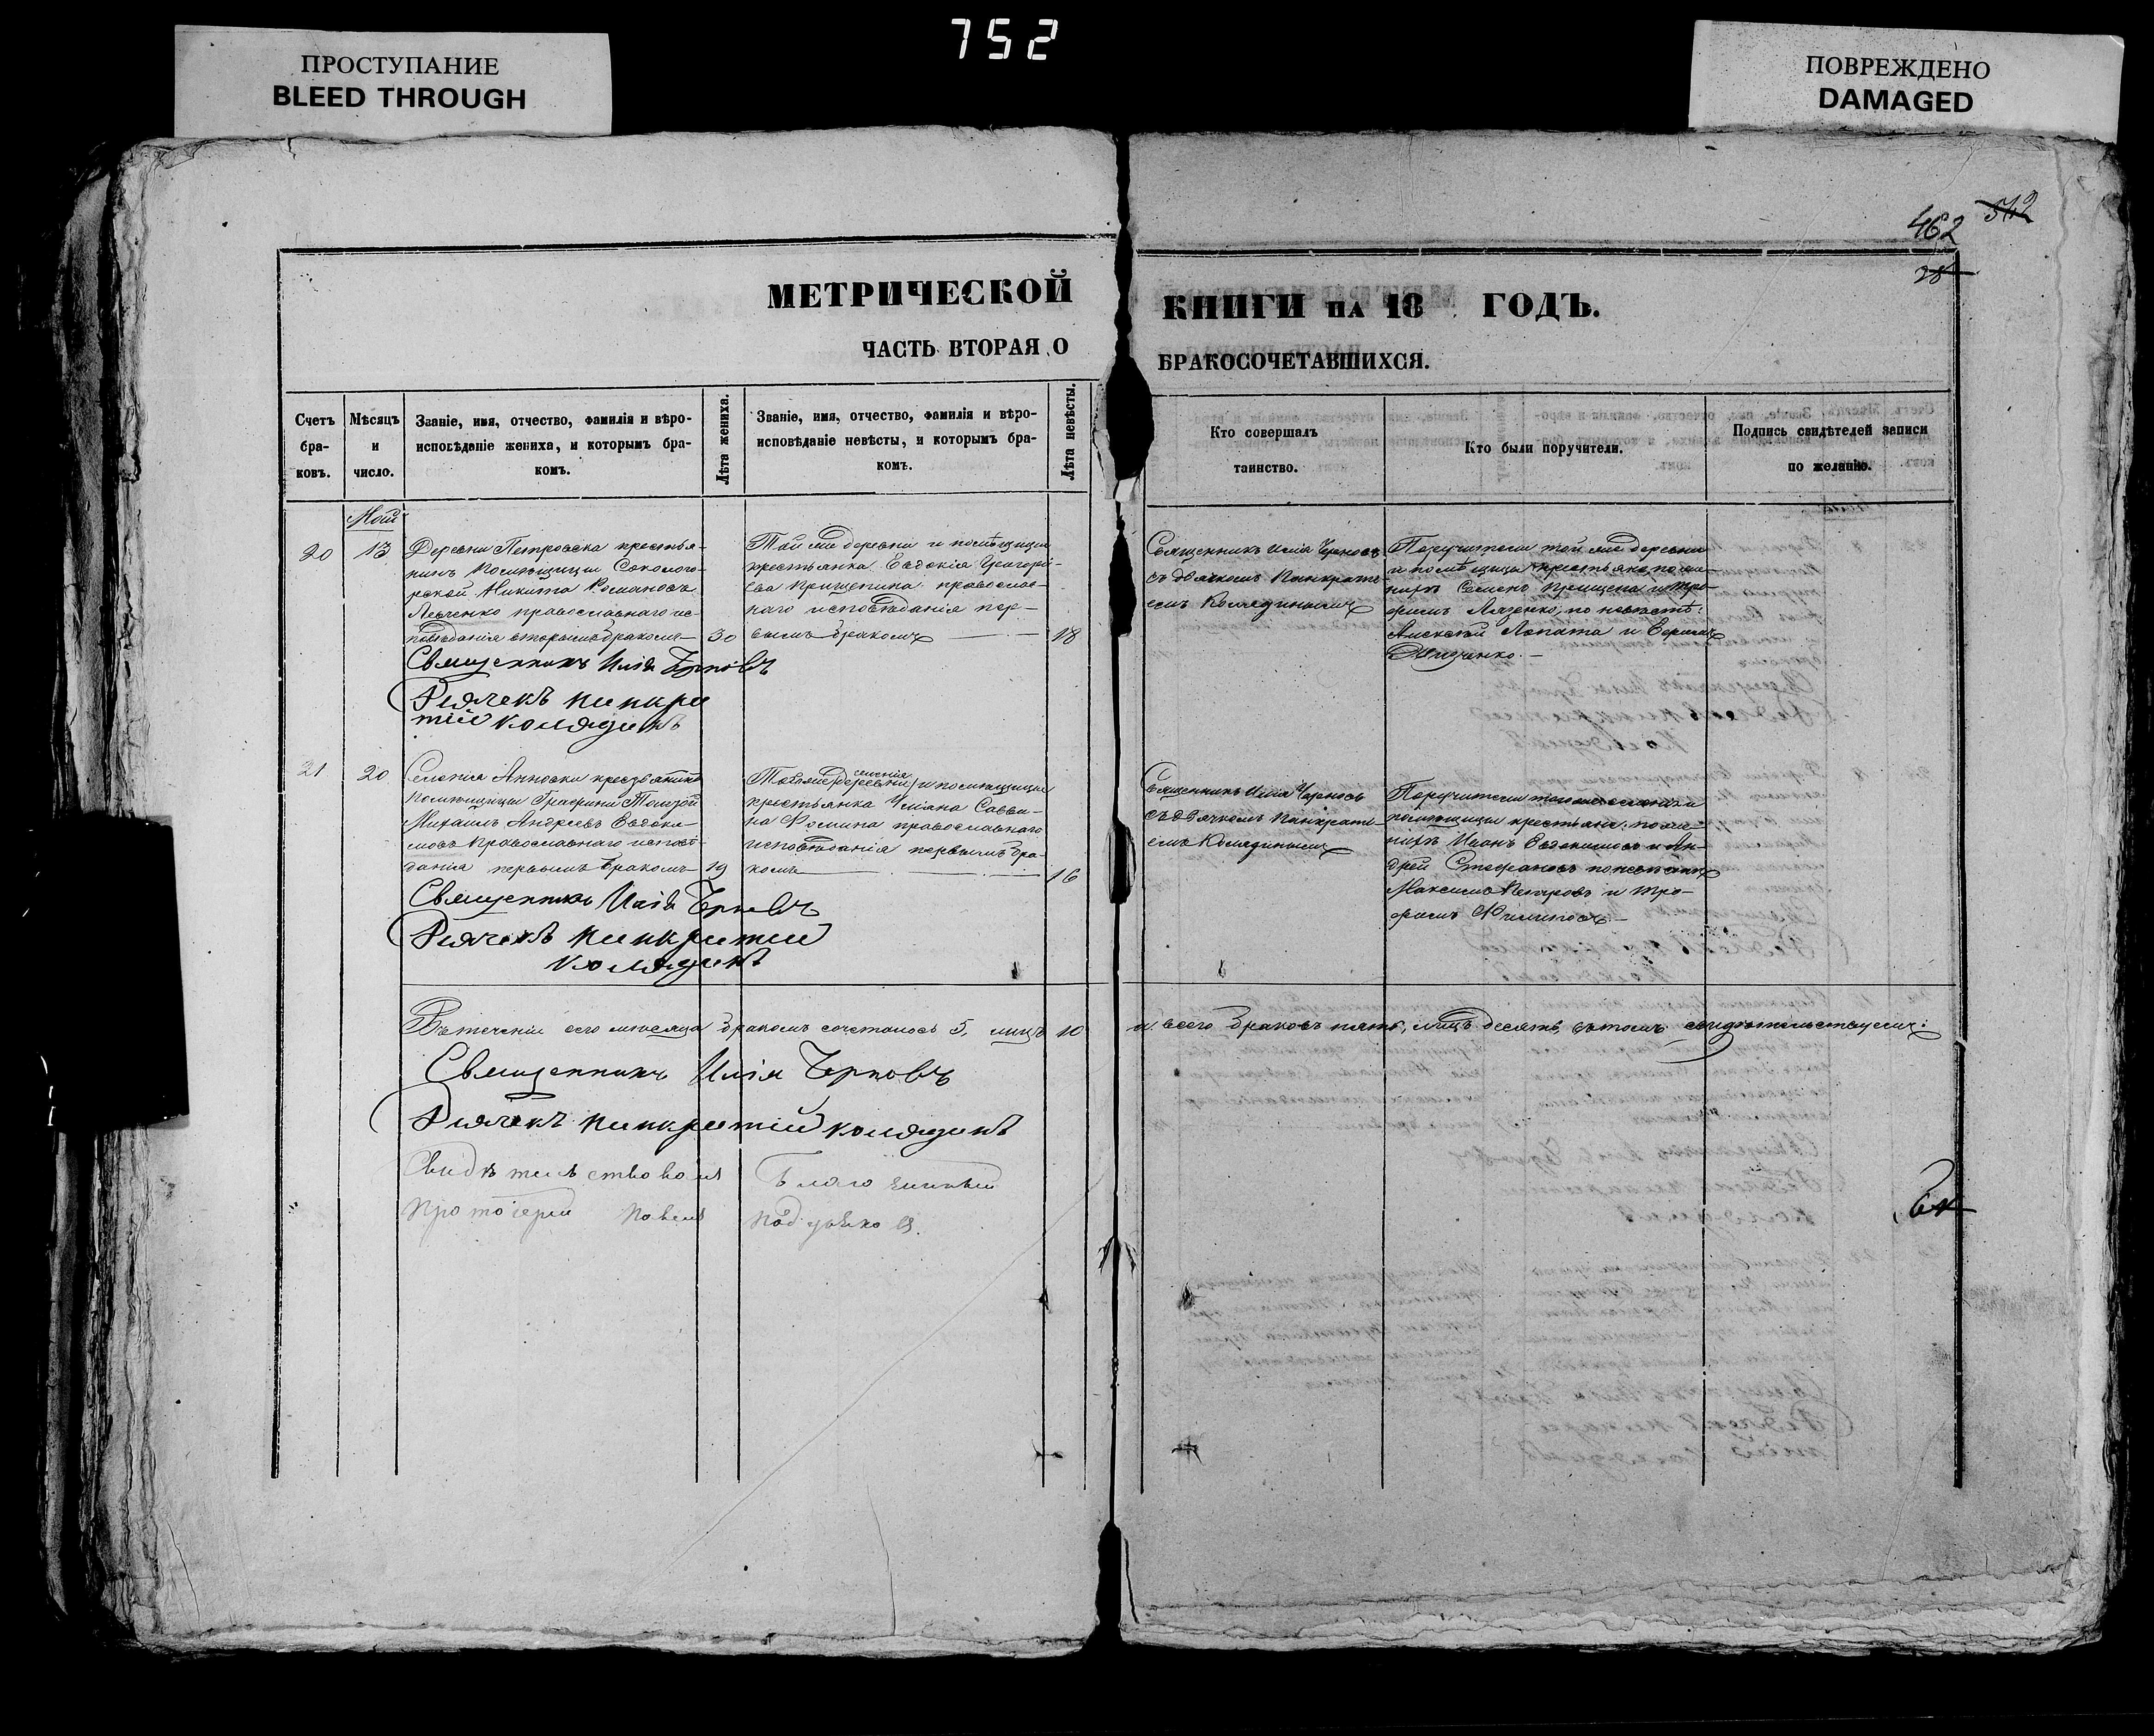 752
ПРОСТУПАНИЕ
BLEED THROUGH
ПОВРЕЖДЕНО
DAMAGED
462 542
28
МЕТРИЧЕСКОЙ КНИГИ НА 18 ГОДЪ.
ЧАСТЬ ВТОРАЯ О БРАКОСОЧЕТАВШИХСЯ.
Счетъ
бра-
ковъ.
Мѣсяцъ
и
число.
Званіе, имя, отчество, фамилія и вѣро-
исповѣданіе жениха, и которымъ бра-
комъ.
Лѣта жениха.
Званіе, имя, отчество, фамилія и вѣро-
исповѣданіе невѣсты, и которымъ бра-
комъ.
Лѣта невѣсты.
Кто совершалъ
таинство.
Кто были поручители.
Подпись свидѣтелей записи
по желанію.
Май
20
13
Деревни Петровска крестья-
нинъ помѣщицы Соколого-
рской Никита Романовъ
Левченко православнаго ис-
повѣданія вторымъ бракомъ
30
Той же деревни и помѣщицы
крестьянка Евдокія Григорь-
ева Крищепина православ-
наго исповѣданія пер-
вымъ бракомъ
18
Священникъ Илія Черновъ
съ дьячкомъ Панкраті-
емъ Колядинымъ
Поручители той же деревни
и помѣщицы крестьяне, по же-
нихѣ Семенъ и Тро-
фимъ по невѣстѣ:
Алексѣй Лопата и
Священникъ Илія Черновъ
Дьячекъ Панкра
тій Колядинъ
21
20
Селенія Анновки крестьянинъ
помѣщицы Графини Толстой
Михаилъ Андреевъ Евдоки-
мовъ православнаго исповѣ-
данія первымъ бракомъ
19
Того же (деревни) селенія и помѣщицы
крестьянка Ульяна Савви-
на Фомина православнаго
исповѣданія первымъ бра-
комъ
16
Священникъ Илія Черновъ
съ дьячкомъ Панкраті-
емъ Колядинымъ
Поручители того же селенія и
помѣщицы крестьяне: по же-
нихѣ Иванъ Евдокимовъ и Ан-
дрей Стефановъ по невѣстѣ
Максимъ Петровъ и Тро-
фимъ Филиповъ.
Священникъ Илія Черновъ
Дьячекъ Панкратій
Колядинъ
Въ теченіи сего мѣсяца бракомъ сочеталось 5, лицъ 10 и всего браковъ пять, лицъ десять, въ томъ свидѣтельствуемъ:
Священникъ Илія Черновъ
Дьячекъ Панкратій Колядинъ
Свидѣтельствовалъ Благочинный
Протоіерей Павелъ